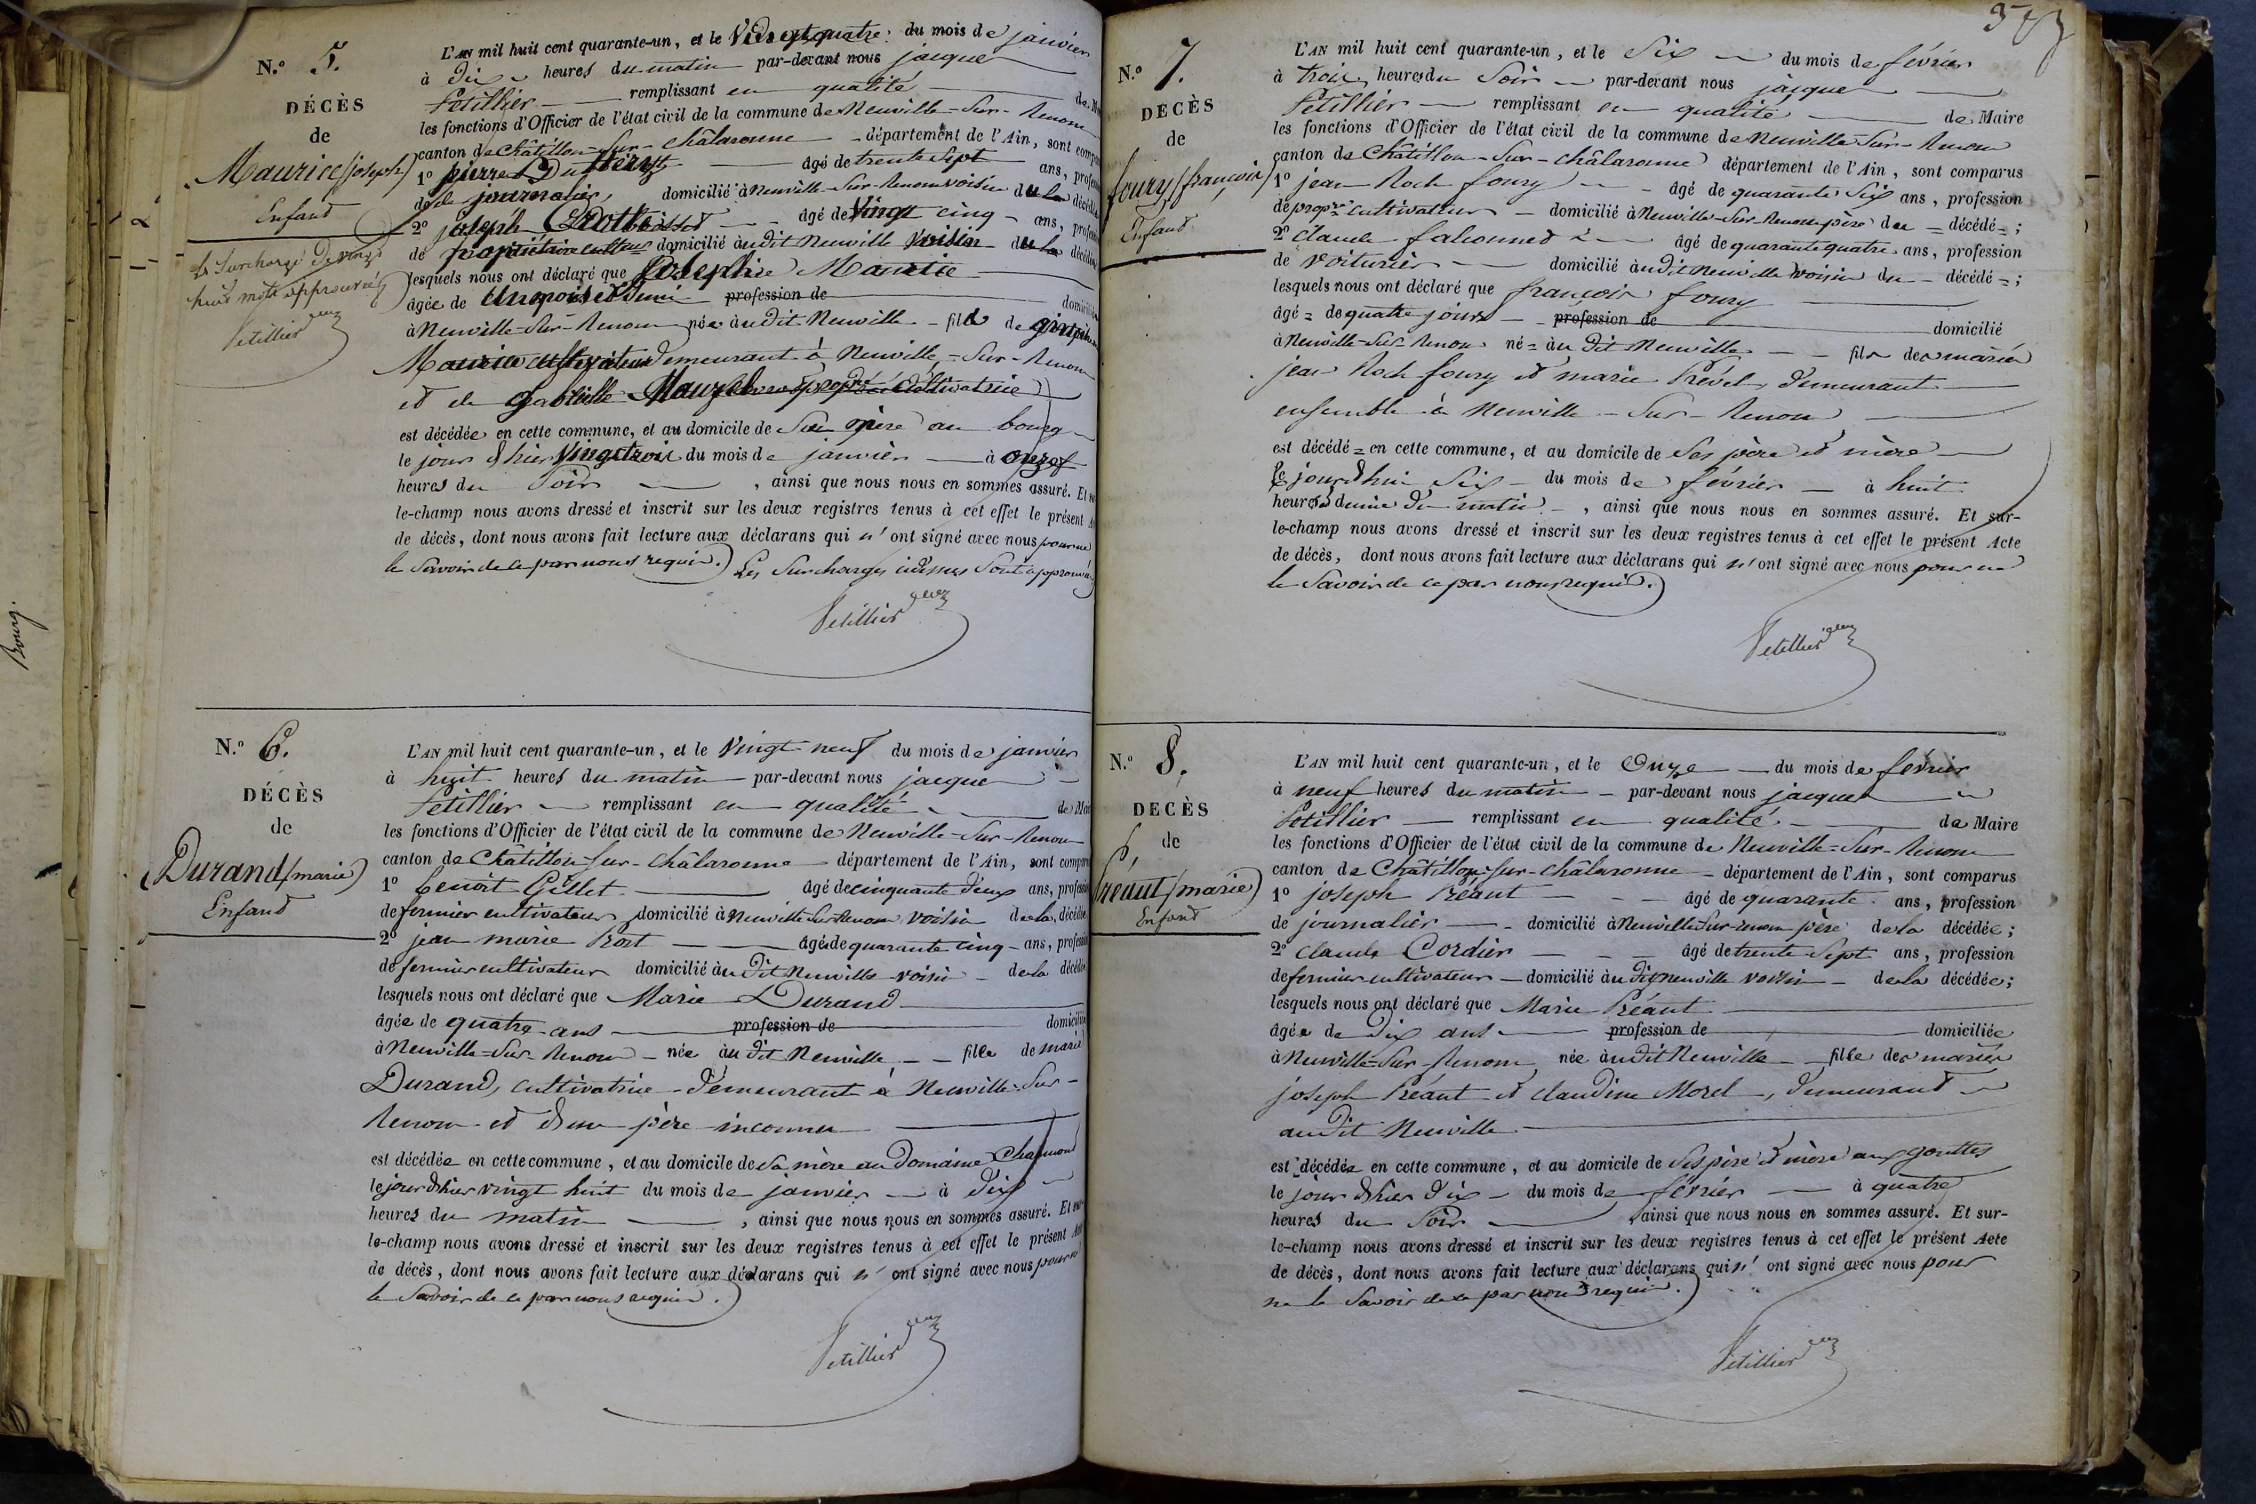 N.o 5.
DÉCÈS
de
Maurice (joseph)
Enfand
La Surcharge de vingt
huit mots approuvée
Petillier
L'AN mil huit cent quarante-un, et le Vingt quatre du mois de janvier
à dix heures du matin par-devant nous jacque
Petillier remplissant en qualité de M
les fonctions d'Officier de l'état civil de la commune de Neuville-Sur-Renom
canton de Châtillon-Sur-Châlaronne département de l'Ain, sont comp
1o pierre âgé de trente Sept ans, profess
de journalier, domicilié à Neuville-Sur-Renom voisin de la décédée
2o joseph âgé de Vingt cinq ans, profess
de propriétaire domicilié àudit Neuville Voisin de la décédée
lesquels nous ont déclaré que Josephine Maurice
âgée de un mois et Demi profession de domicili
à Neuville-Sur-Renom née àudit Neuville fille de
Maurice cultivateur Demeurant à Neuville-Sur-Renom
et de gabrielle cultivatrice
est décédée en cette commune, et au domicile de Son père au bourg
le jour d'hier Vingt trois du mois de janvier à onze
heures du Soir, ainsi que nous nous en sommes assuré. Et sur
le-champ nous avons dressé et inscrit sur les deux registres tenus à cet effet le présent A
de décès, dont nous avons fait lecture aux déclarans qui n'ont signé avec nous pour ne
le Savoir de ce par nous requis. Les Surcharges idemes Sont approuvées
Petillier
N.o 6.
DÉCÈS
de
Durand (marie)
Enfand
L'AN mil huit cent quarante-un, et le Vingt neuf du mois de janvier
à huit heures du matin par-devant nous jacque
Petillier remplissant en qualité de Mai
les fonctions d'Officier de l'état civil de la commune de Neuville-Sur-Renom
canton de Châtillon-Sur-Châlaronne département de l'Ain, sont compar
1o benoît Gillet âgé de cinquante deux ans, professi
de fermier cultivateur, domicilié à Neuville Sur Renom voisin de la décédée
2o jean marie Prost âgé de quarante cinq ans, professi
de fermier cultivateur domicilié àu dit Neuville voisin de la décédée
lesquels nous ont déclaré que Marie Durand
âgée de quatre ans profession de domiciliée
à Neuville-Sur Renom née àu dit Neuville fille de marie
Durand, cultivatrice demeurant à Neuville-Sur-
Renom et d'un père inconnu
est décédée en cette commune, et au domicile de Sa mère au Domaine Chaumont
le jour d'hier vingt huit du mois de janvier à dix
heures du matin, ainsi que nous nous en sommes assuré. Et sur
le-champ nous avons dressé et inscrit sur les deux registres tenus à cet effet le présent Act
de décès, dont nous avons fait lecture aux déclarans qui n'ont signé avec nous pour ne
le Savoir de ce par nous requis.
Petillier
N.o 7.
DÉCÈS
de
foury (françois)
Enfand
L'AN mil huit cent quarante-un, et le Six du mois de février
à trois heures du Soir par-devant nous jacque
Petillier remplissant en qualité de Maire
les fonctions d'Officier de l'état civil de la commune de Neuville-Sur-Renom
canton de Châtillon-Sur-Châlaronne département de l'Ain, sont comparus
1o jean Roch foury âgé de quarante Six ans, profession
de propre cultivateur domicilié à Neuville-Sur-Renom père du = décédé = ;
2o claude falconnet âgé de quarante quatre ans, profession
de voiturier domicilié àudit Neuville voisin du décédé = ;
lesquels nous ont déclaré que françois foury
âgé = de quatre jours profession de domicilié
à Neuville-Sur-Renom né = àu dit Neuville fils des mariés
jean Roch foury et marie Prével, demeurant
ensemble à Neuville-Sur-Renom
est décédé = en cette commune, et au domicile de Ses père et mère
le jourd'hui Six du mois de février à huit
heures et demie du matin, ainsi que nous nous en sommes assuré. Et sur-
le-champ nous avons dressé et inscrit sur les deux registres tenus à cet effet le présent Acte
de décès, dont nous avons fait lecture aux déclarans qui n'ont signé avec nous pour ne
le Savoir de ce par nous requis.
Petillier
N.o 8.
DÉCÈS
de
Préaut (marie)
Enfand
L'AN mil huit cent quarante-un, et le Onze du mois de février
à neuf heures du matin par-devant nous jacque
Petillier remplissant en qualité de Maire
les fonctions d'Officier de l'état civil de la commune de Neuville-Sur-Renom
canton de Châtillon-Sur-Châlaronne département de l'Ain, sont comparus
1o joseph Préaut âgé de quarante ans, profession
de journalier domicilié à Neuville Sur-renom père de la décédée;
2o claude Cordier âgé de trente Sept ans, profession
de fermier cultivateur domicilié àu dit Neuville voisin de la décédée;
lesquels nous ont déclaré que Marie Préaut
âgée de dix ans profession de domiciliée
à Neuville-Sur-Renom née àudit Neuville fille des mariés
joseph Préaut et claudine Morel, demeurant
audit Neuville
est décédée en cette commune, et au domicile de Ses père et mère aux gouttes
le jour d'hier dix du mois de février à quatre
heures du Soir ainsi que nous nous en sommes assuré. Et sur-
le-champ nous avons dressé et inscrit sur les deux registres tenus à cet effet le présent Acte
de décès, dont nous avons fait lecture aux déclarans qui n'ont signé avec nous pour
ne le Savoir de ce par nous requis.
Petillier
Bourg.